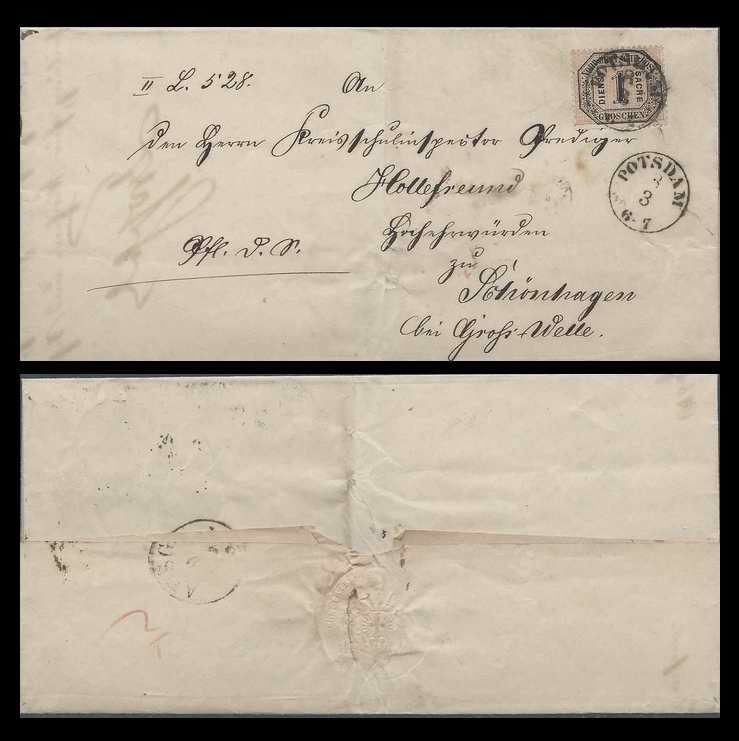 II L. 528.
An
den Herrn Kreisschulinspector Prediger
Hollefreund
Hochehrwürden
zu
Schönhagen
bei Gross-Welle.
Pfl. d. S.
DIENST SACHE
1
GROSCHEN
POTSDAM
3
3
6-7